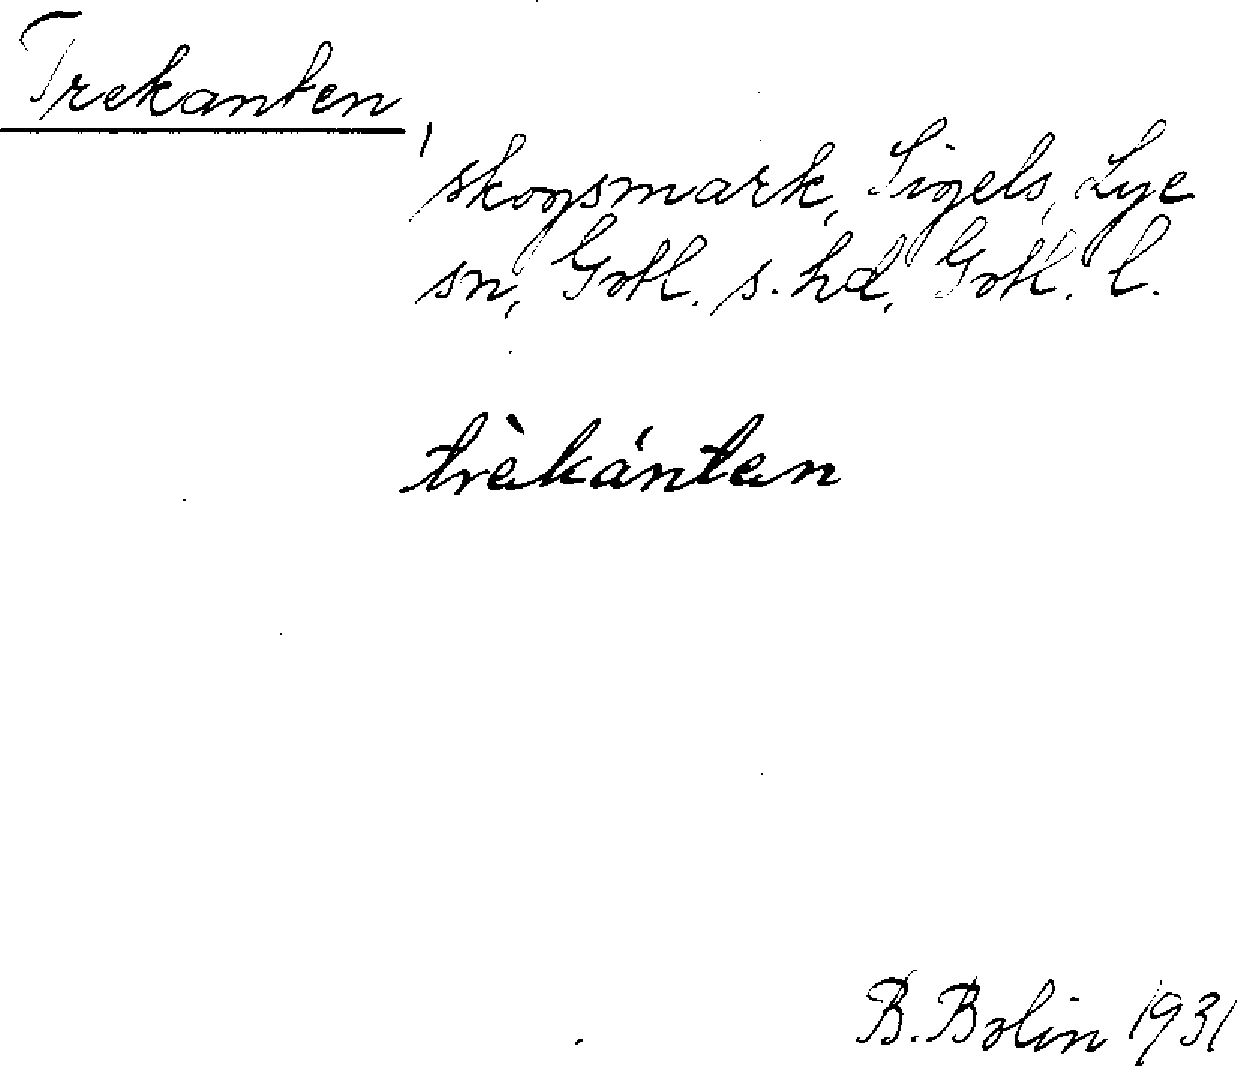 Trekanten,
skogsmark, Sigels, Lye
sn, Gotl. s. hd, Gotl. l.
trèkántan
B. Bolin 1931